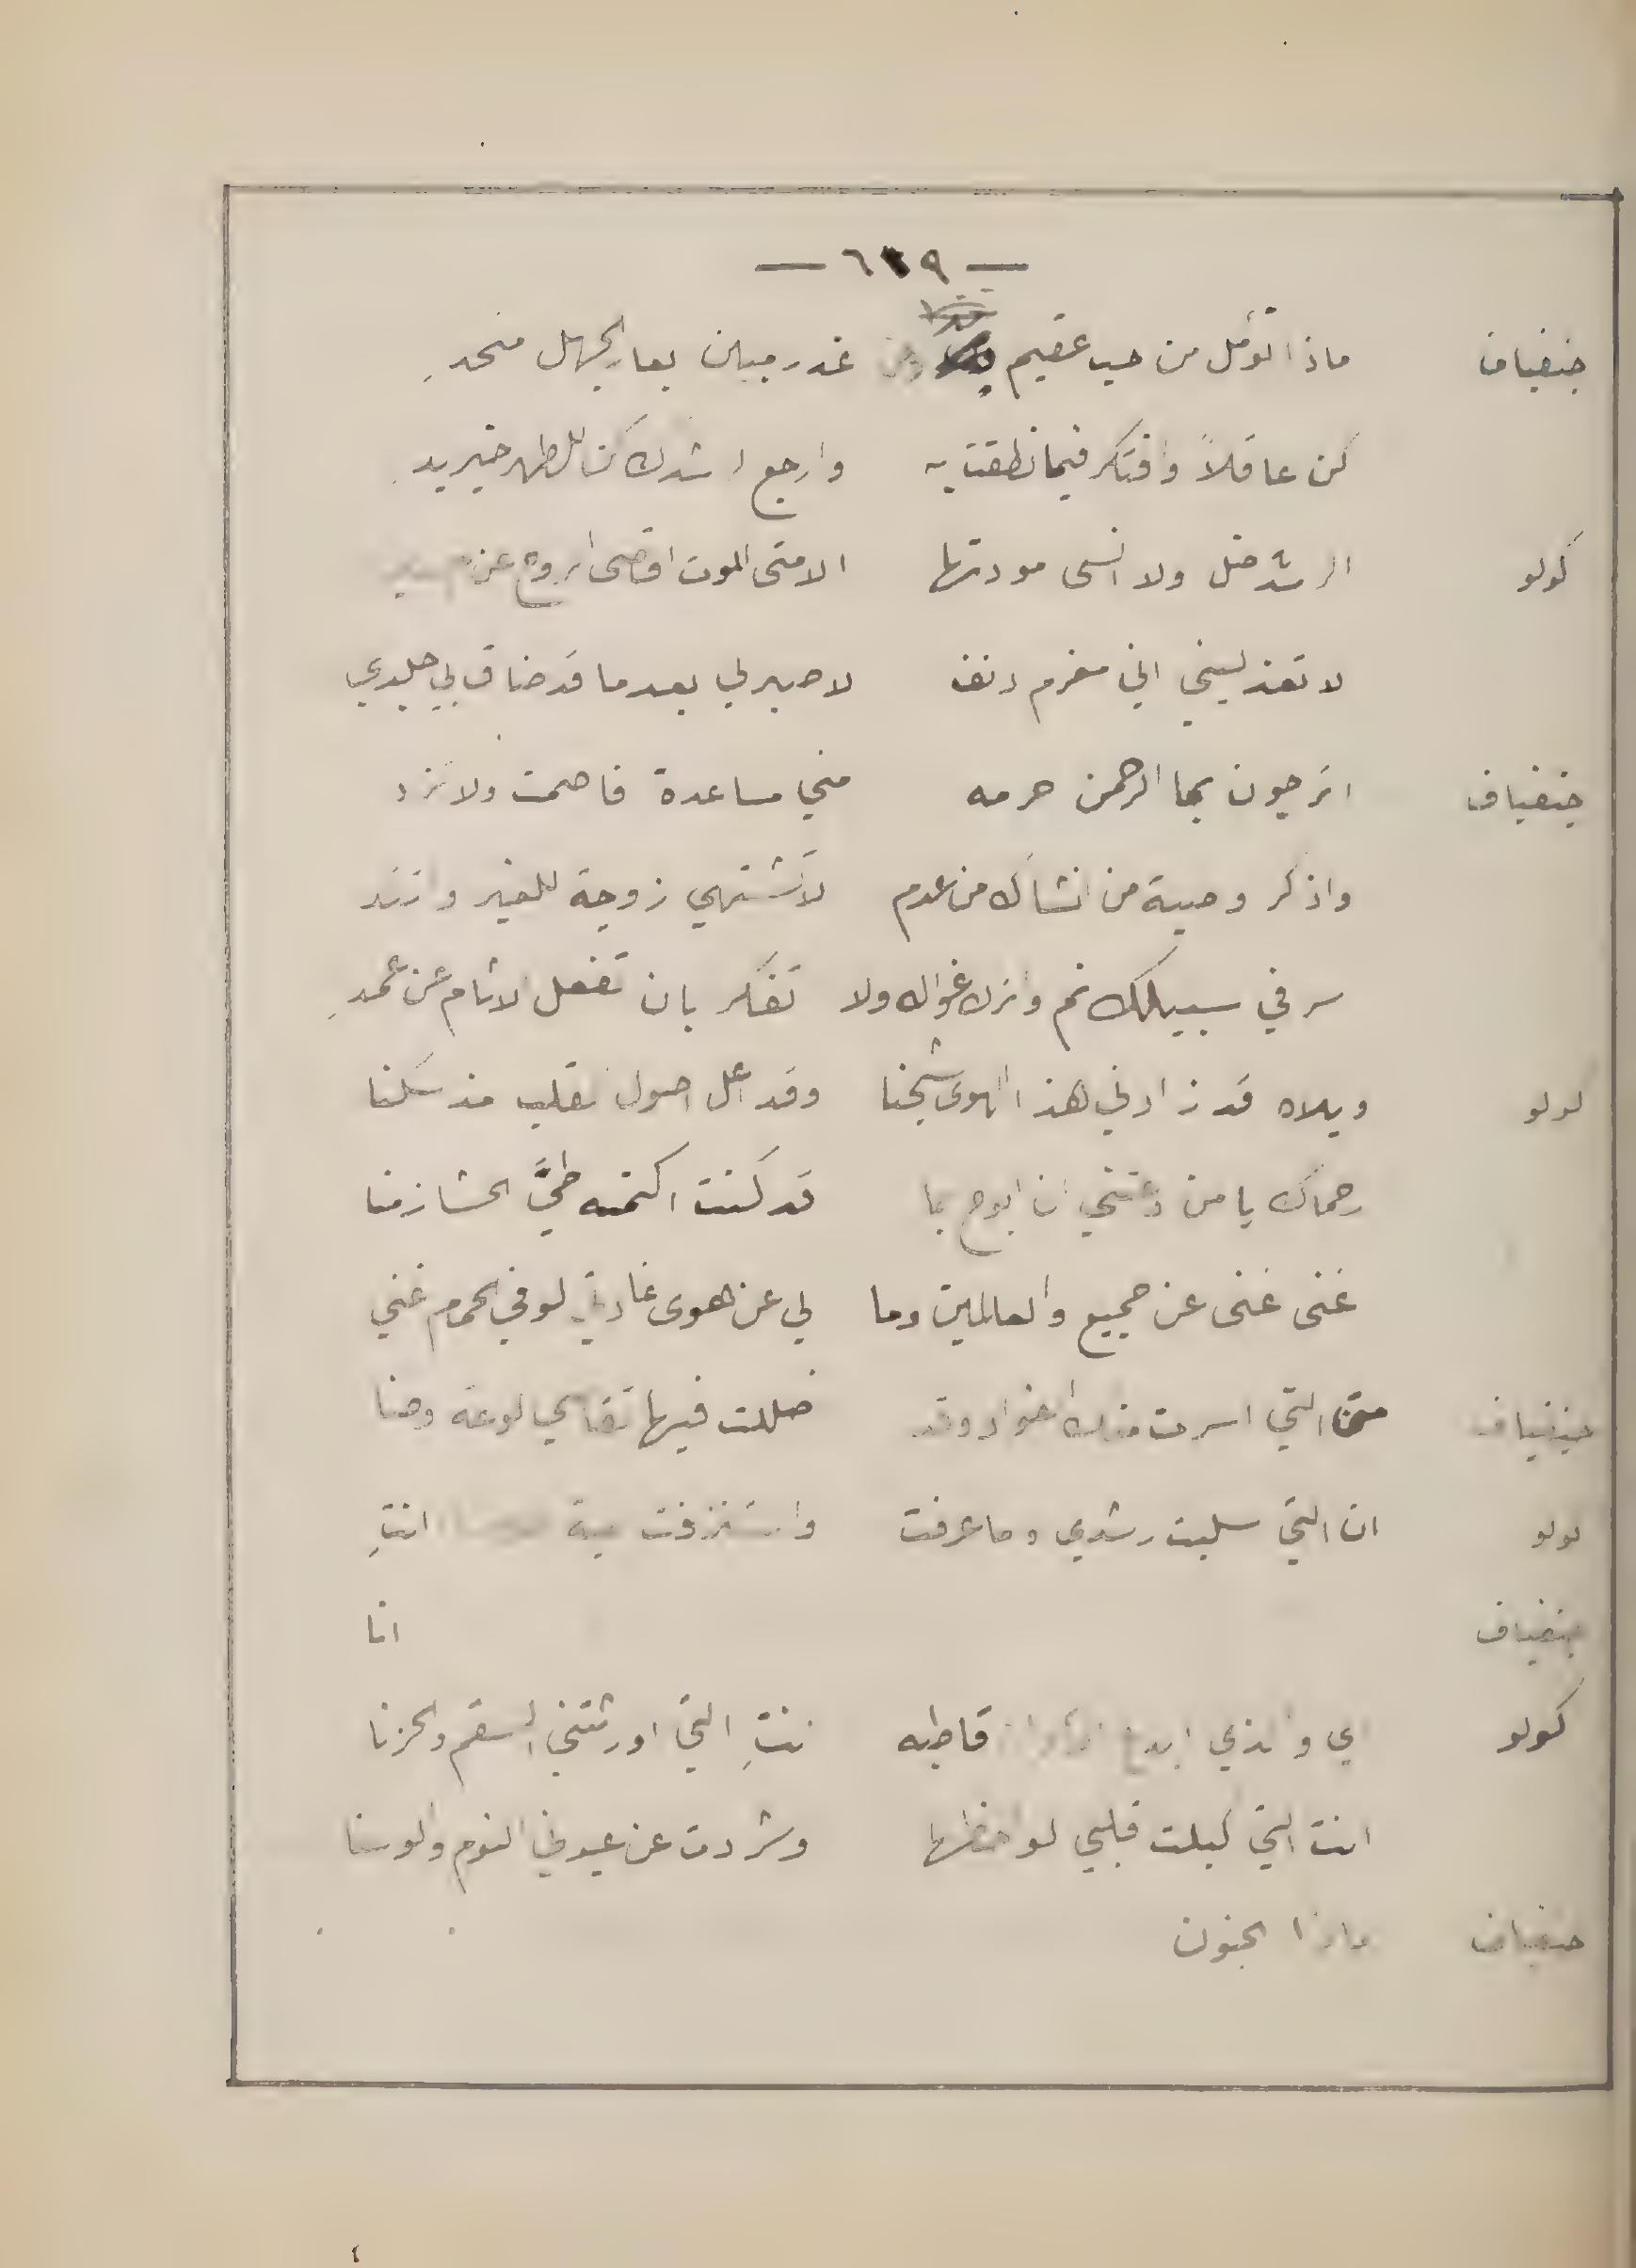 — ٦٢٩ —
جنفياف ماذا تؤمل من حب عقيم ومن غدر مبين بعار الجهل متحدِ
كن عاقلاً وافتكر فيما نطقت به وارجع لرشدك كن للطهر خير يد
كولو الرشد ضل ولا انسى مودتها الا متى الموت اقصى الروح عن
لا تعذليني اني مغرم دنف لا صبر لي بعدما قد ضاق بي جلدي
جنفياف اترجون بما الرحمن حرمه مني مساعدة فاصمت ولا تزد
واذكر وصية من انشاك من عدم لا تشتهي زوجة للغير واتئد
سر في سبيلك نم واترك غواك ولا تفكر بان تفعل الاثام عن عمدِ
لولو ويلاه قد زادني هذا الهوى شجنا وقد اعل اصول القلب مذ سكنا
رحماك يا من دعتني ان ابوح بما قد كنت اكتمه طيَّ الحشا زمنا
غنى غنى عن جميع والعالمين وما لي عن هوى غادتي لو في الحمام غني
جنفياف من التي اسرت منك الفواد وقد ظللت فيها تقاسي لوعة وضنا
لولو ان التي سلبت رشدي وما عرفت واستنزفت انتِ
جنفياف انا
كولو اي والذي ابدع قاطبه انتِ التي اورثتني السقم والحزنا
انت التي كبلت قلبي لواحظها وشردت عن عيوني النوم والوسنا
جنفياف الجنون